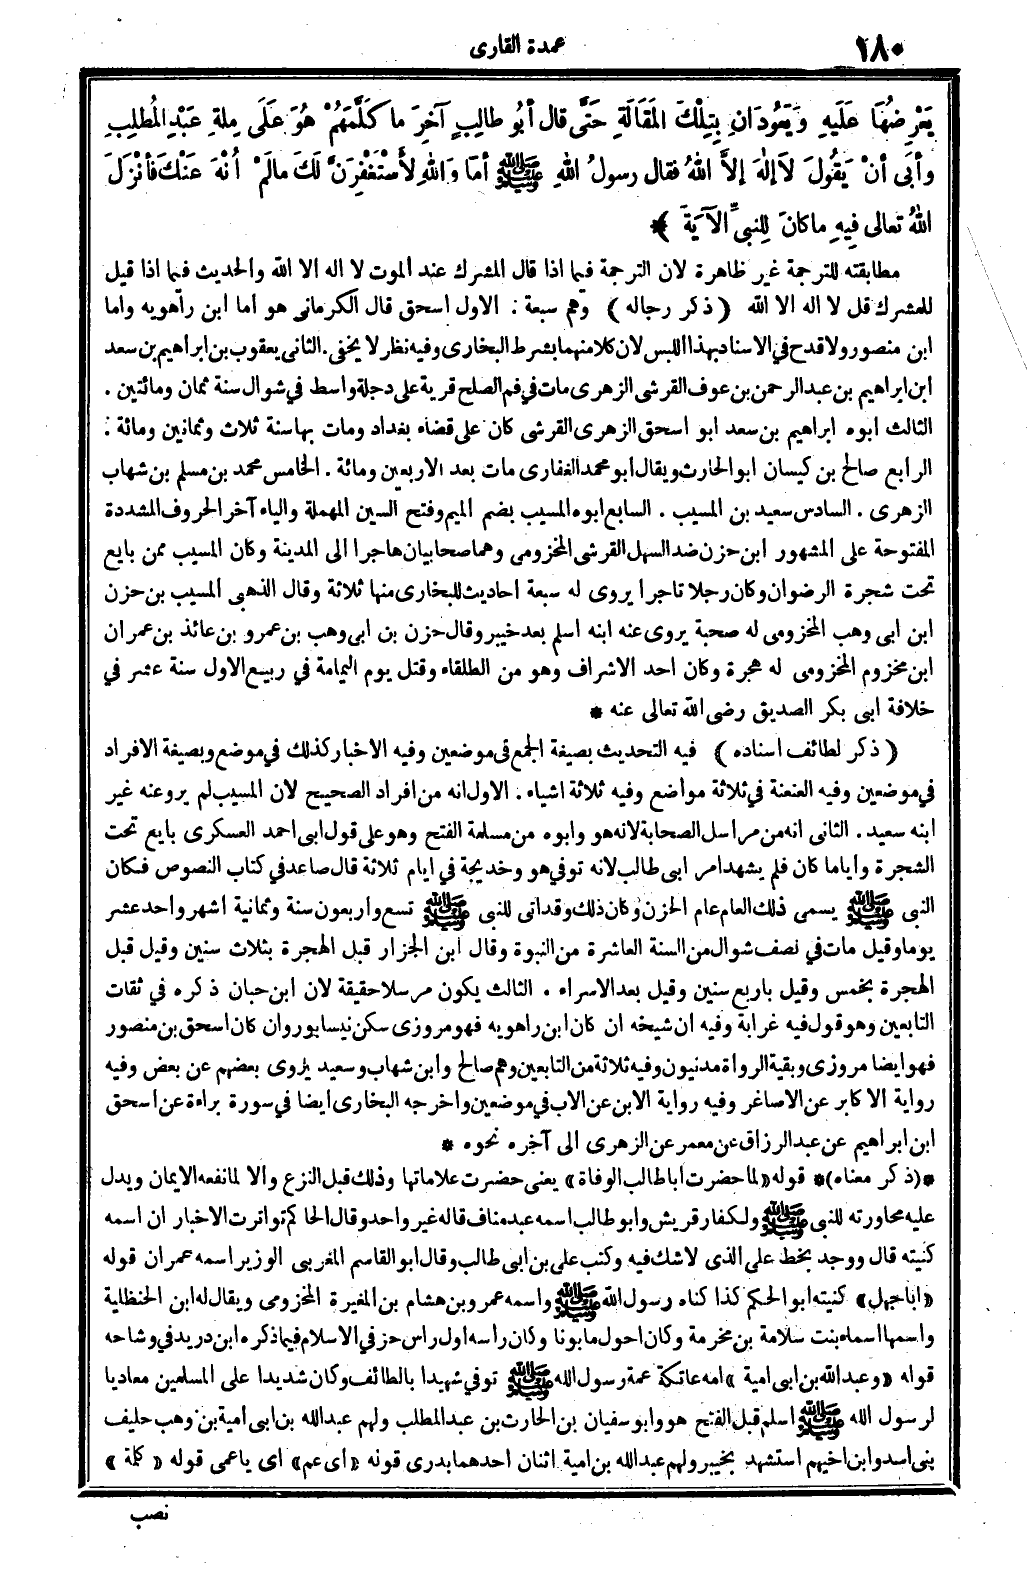 ١٨٠
عمدة القارى
يَعْرِضُهَا عَلَيهِ وَيَعُودَانِ بِتِلْكَ المَقَالَةِ حَتَّى قال أبُو طالِبٍ آخِرَ ما كَلَّمَهُمْ هُوَ عَلَى مِلةِ عَبْدِ المُطلِبِ
وأبَى أنْ يَقُولَ لاَ إلٰهَ إلاَّ اللهُ فقال رسولُ اللهِ ﷺ أمَا وَاللهِ لأَسْتَغْفِرَنَّ لَكَ مالَمْ أُنْهَ عَنْكَ فأنْزَلَ
اللهُ تعالى فِيهِ ما كانَ لِلنبيِّ الآيَةَ ﴾ *
مطابقته للترجمة غير ظاهرة لان الترجمة فيما اذا قال المشرك عند الموت لا اله الا الله والحديث فيما اذا قيل
للمشرك قل لا اله الا الله ( ذكر رجاله ) وهم سبعة : الاول اسحق قال الكرمانى هو اما ابن راهويه واما
ابن منصور ولا قدح في الاسناد بهذا اللبس لان كلا منهما بشرط البخارى وفيه نظر لا يخفى . الثانى يعقوب بن ابراهيم بن سعد
ابن ابراهيم بن عبد الرحمن بن عوف القرشى الزهرى مات في فم الصلح قرية على دجلة واسط في شوال سنة ثمان ومائتين .
الثالث ابوه ابراهيم بن سعد ابو اسحق الزهرى القرشى كان على قضاء بغداد ومات بها سنة ثلاث وثمانين ومائة :
الرابع صالح بن كيسان ابو الحارث ويقال ابو محمد الغفارى مات بعد الاربعين ومائة . الخامس محمد بن مسلم بن شهاب
الزهرى . السادس سعيد بن المسيب . السابع ابوه المسيب بضم الميم وفتح السين المهملة والياء آخر الحروف المشددة
المفتوحة على المشهور ابن حزن ضد السهل القرشى المخزومى وهما صحابيان هاجرا الى المدينة وكان المسيب ممن بايع
تحت شجرة الرضوان وكان رجلا تاجرا يروى له سبعة احاديث للبخارى منها ثلاثة وقال الذهبى المسيب بن حزن
ابن ابى وهب المخزومى له صحبة يروى عنه ابنه اسلم بعد خيبر وقال حزن بن ابى وهب بن عمرو بن عائذ بن عمران
ابن مخزوم المخزومى له هجرة وكان احد الاشراف وهو من الطلقاء وقتل يوم اليمامة في ربيع الاول سنة عشر في
خلافة ابى بكر الصديق رضى الله تعالى عنه *
( ذكر لطائف اسناده ) فيه التحديث بصيغة الجمع فى موضعين وفيه الاخبار كذلك في موضع وبصيغة الافراد
في موضعين وفيه العنعنة في ثلاثة مواضع وفيه ثلاثة اشياء . الاول انه من افراد الصحيح لان المسيب لم يرو عنه غير
ابنه سعيد . الثانى انه من مراسل الصحابة لانه هو وابوه من مسلمة الفتح وهو على قول ابى احمد العسكرى بايع تحت
الشجرة وأياما كان فلم يشهد امر ابى طالب لانه توفي هو وخديجة في ايام ثلاثة قال صاعد في كتاب النصوص فكان
النبى ﷺ يسمى ذلك العام عام الحزن وكان ذلك وقد اتى للنبى ﷺ تسع واربعون سنة وثمانية اشهر واحد عشر
يوما وقيل مات في نصف شوال من السنة العاشرة من النبوة وقال ابن الجزار قبل الهجرة بثلاث سنين وقيل قبل
الهجرة بخمس وقيل باربع سنين وقيل بعد الاسراء . الثالث يكون مرسلا حقيقة لان ابن حبان ذكره في ثقات
التابعين وهو قول فيه غرابة وفيه ان شيخه ان كان ابن راهويه فهو مروزى سكن نيسابور وان كان اسحق بن منصور
فهو ايضا مروزى وبقية الرواة مدنيون وفيه ثلاثة من التابعين وهم صالح وابن شهاب وسعيد يروى بعضهم عن بعض وفيه
رواية الاكابر عن الاصاغر وفيه رواية الابن عن الاب في موضعين واخرجه البخارى ايضا في سورة براءة عن اسحق
ابن ابراهيم عن عبد الرزاق عن معمر عن الزهرى الى آخره نحوه *
*( ذكر معناه)* قوله « لما حضرت أبا طالب الوفاة » يعنى حضرت علاماتها وذلك قبل النزع والا لما نفعه الايمان ويدل
عليه محاورته للنبى ﷺ ولكفار قريش وابو طالب اسمه عبد مناف قاله غير واحد وقال الحاكم تواترت الاخبار ان اسمه
كنيته قال ووجد بخط على الذى لاشك فيه وكتب على بن ابى طالب وقال ابو القاسم المغربى الوزير اسمه عمران قوله
« اباجهل » كنيته ابو الحكم كذا كناه رسول الله ﷺ واسمه عمرو بن هشام بن المغيرة المخزومى ويقال له ابن الحنظلية
واسمها اسماء بنت سلامة بن مخرمة وكان احول مابونا وكان رأسه اول راس حز في الاسلام فيما ذكره ابن دريد في وشاحه
قوله « وعبد الله بن ابى امية » امه عاتكة عمة رسول الله ﷺ توفي شهيدا بالطائف وكان شديدا على المسلمين معاديا
لرسول الله ﷺ اسلم قبل الفتح هو وابو سفيان بن الحارث بن عبد المطلب ولهم عبد الله بن ابى امية بن وهب حليف
بنى اسد وابن اخيهم استشهد بخيبر ولهم عبد الله بن امية اثنان احدهما بدرى قوله « اى عم » اى يا عمى قوله « كلمة »
نصب